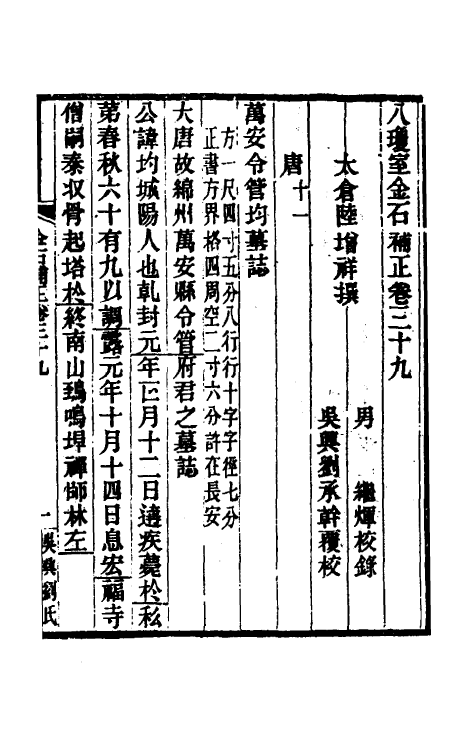 八瓊室金石補正卷三十九
太倉陸增祥撰
男 繼煇校錄
吳興劉承幹覆校
唐十一
萬安令管均墓誌
方一尺四寸五分八行行十字字徑七分
正書方界格四周空二寸六分許在長安
大唐故綿州萬安縣令管府君之墓誌
公諱均城陽人也乹封元年正月十二日遘疾薨於私
第春秋六十有九以調露元年十月十四日息宏福寺
僧嗣泰収骨起塔於終南山鵄鳴埠禪師林左
金石補正卷三十九
一
吳興劉氏